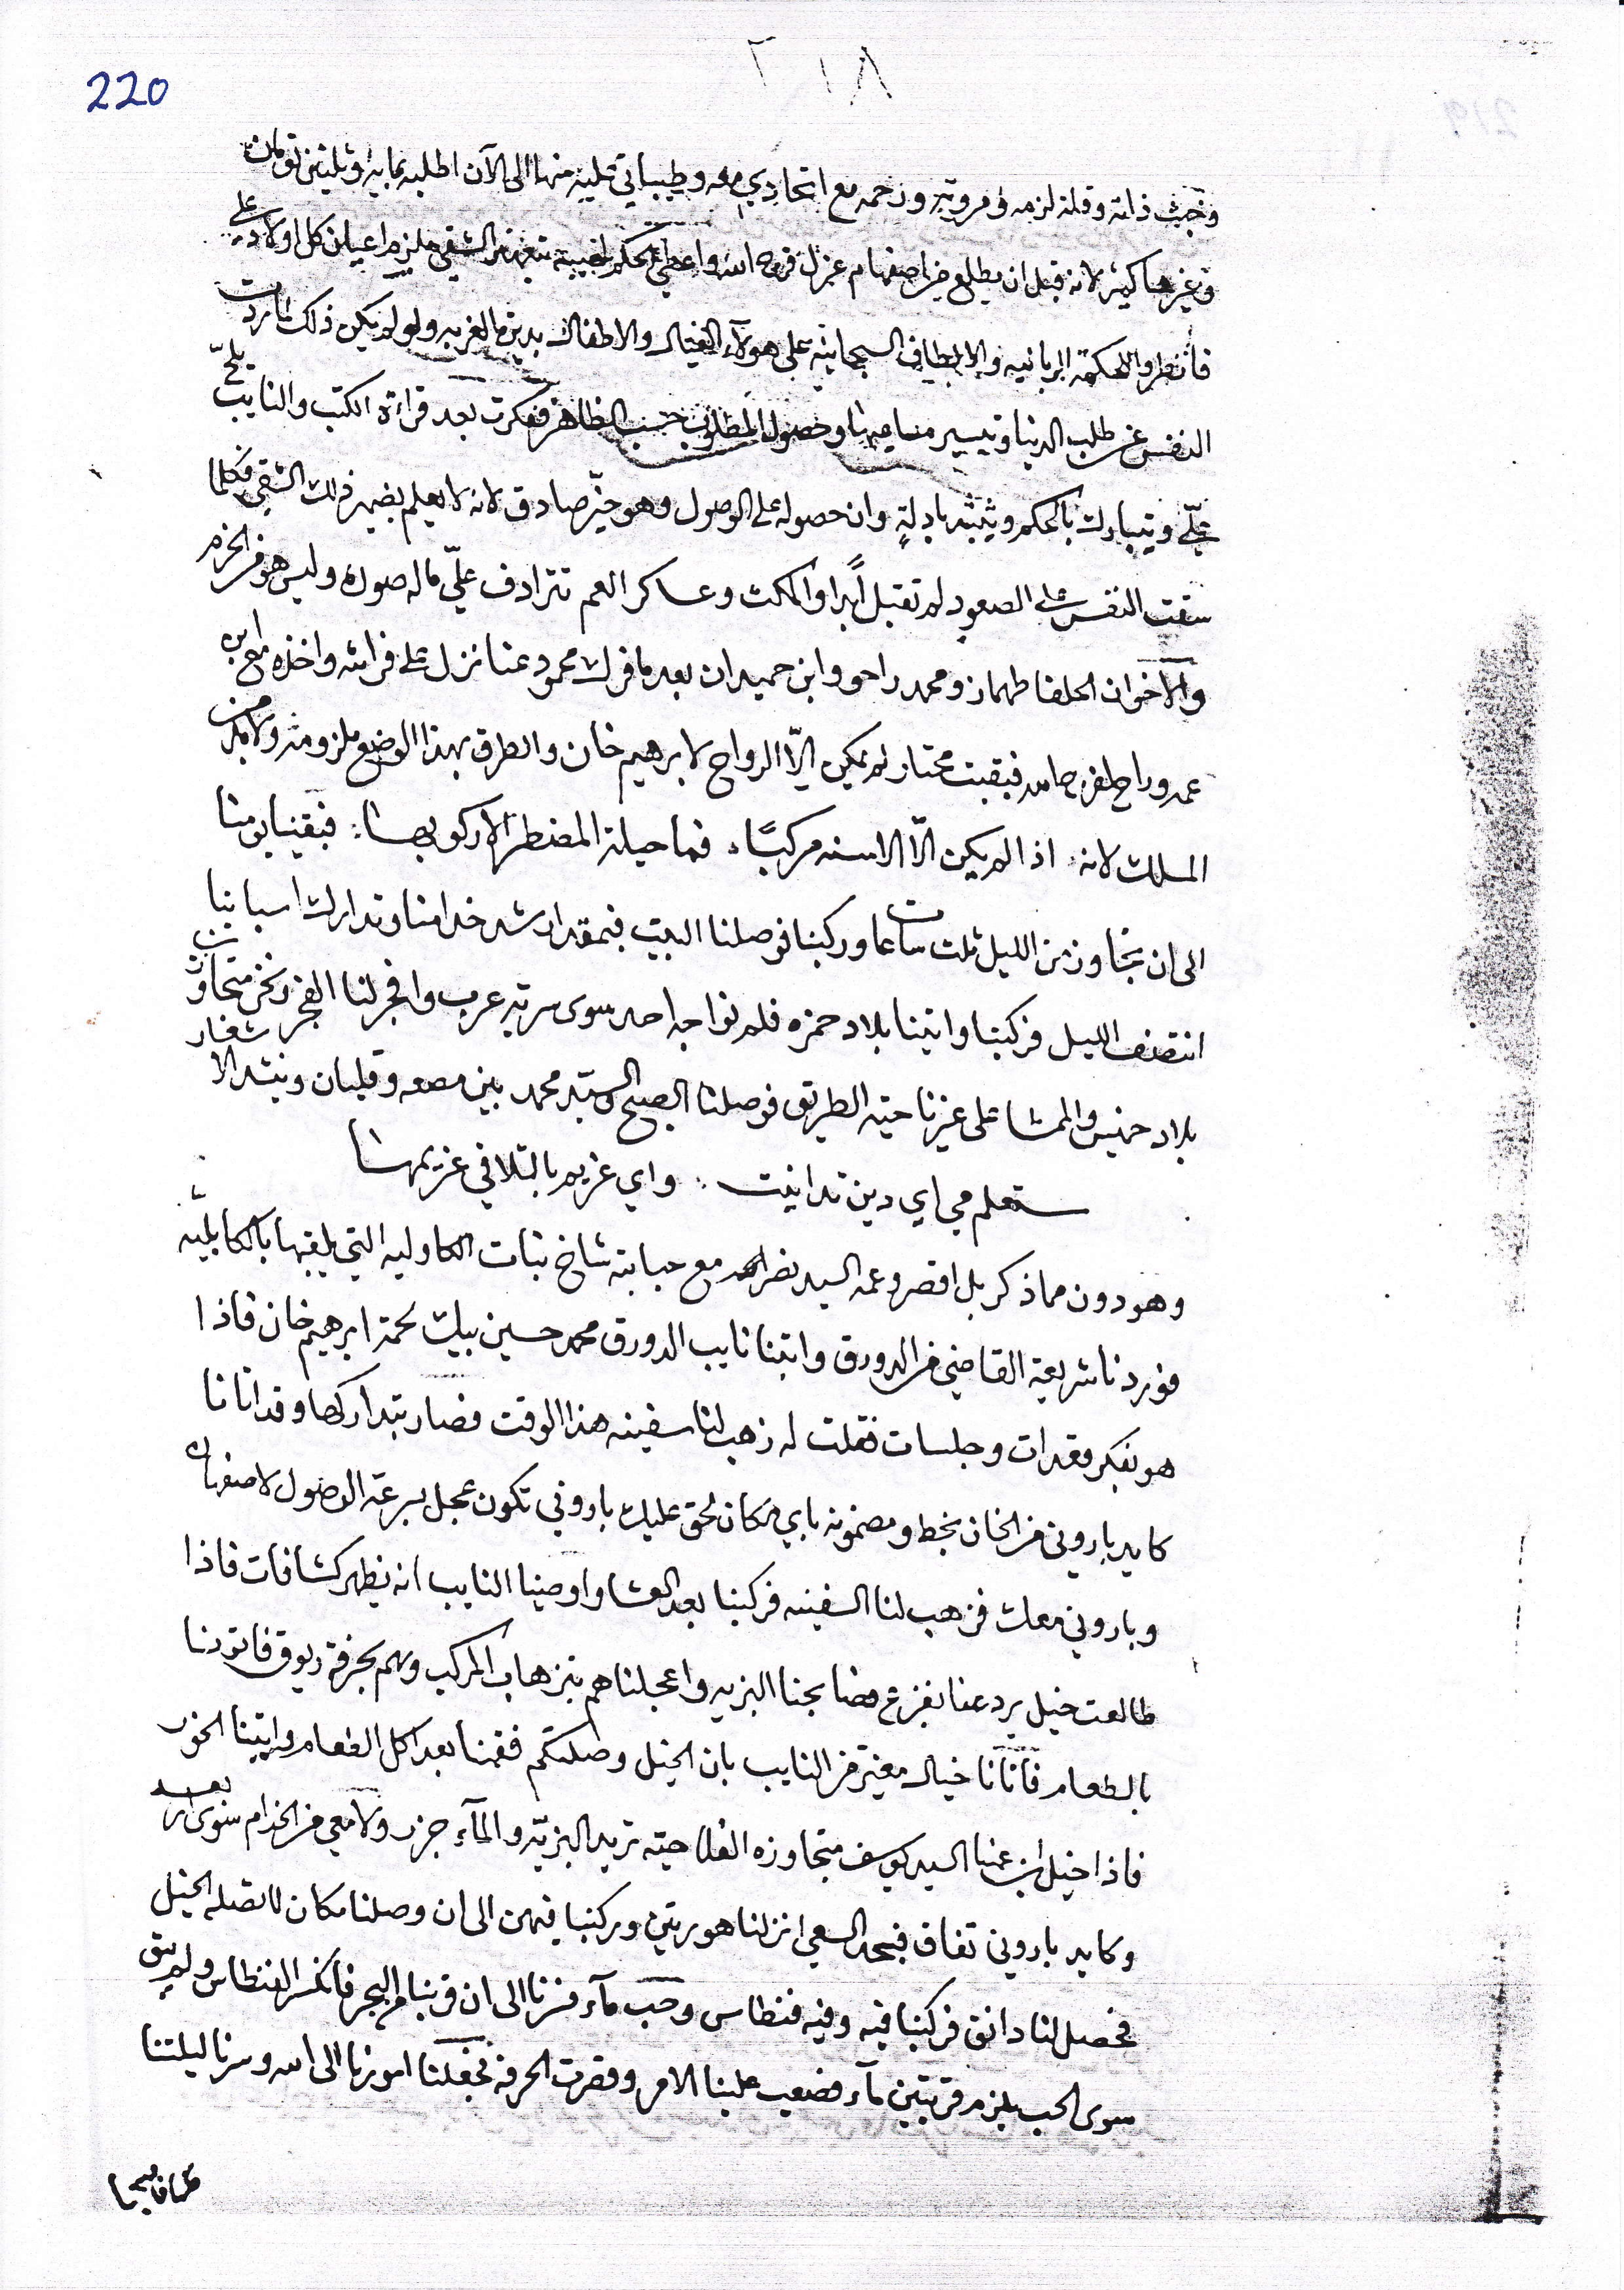 220
٢١٨
وخبث ذاته وقلة لزمه ومروته ورحمه مع اتحادي معه وطيباتي عليه منها الى الآن اطلبه بماية وثلثين تومان
وغيرها كثير لانه قبل ان يطلع من اصفهام عزل فرج الله واعطي الحكم لخيبته بتعهد الشقي ملزم اعيان كل اولاد علي
فانظروا للحكمة الربانيه والالطاف السبحانيه على هولآء العيال والاطفال بدين الغربه ولو لم يكن ذلك لما ردت
النفس عن طلب الدنيا وتيسير مساعيها وحصول المطلوب حسب الظاهر ففكرت بعد قراءة الكتب والنايب يلحّ
عليّ ويتبارك بالحكم ويثبته بادلةٍ وان حصوله على الوصول وهو خيّر صادق لانه لا يعلم بضمير ذلك الشقي فكلما
سقت النفس على الصعود لم تقبل ابدًا والمكث وعساكر العم تترادف عليّ ماله صوره وليس هو من الحزم
والاخوان الحلفا طهماز ومحمد راحو وابن حميدان بعد ما فرك محمود عنا نزل على فراشه واخذه مع ابن
عمه وراح فبقيت محتار لم يمكن الّا الرواح لابرهيم خان والطرق بهذا الوضع ملزومه ولابد من
المسلك لانه اذا لم يكن الّا الاسنه مركبًا فما حيلة المضطر الا ركوبها فبقينا يومنا
الى ان تجاوز من الليل ثلث ساعات وركبنا فوصلنا البيت فبمقدار شد خدامنا وتدارك اسبابنا
انتصف الليل فركبنا واتينا بلاد حمزه فلم نواجه احد سوى سرية عرب وافجر لنا الفجر ونحن متجاوزين
بلاد خنيس والمشا على غيرنا حيته الطريق فوصلنا الصبح السيد محمد بين مصعه وقلبان وينشد الاشعار
ستعلم مي اي دين تداينت واي غريم بالتلافي غريمها
وهو دون مما ذكر بل اقصر وعمه السيد نصر الله مع حبابته شاخ بنات الكاوليه التي يلقبها بالكابليّه
فوردنا شريعة القاضي من الدورق واتينا نايب الدورق محمد حسين بيك لحمة ابرهيم خان فاذا
هو بفكر وقعدات وجلسات فقلت له زهب لنا سفينه هذا الوقت فصار بتداركها وقد اتانا
كايد باروني من الخان بخط ومضمونه باي مكان لحق عليك باروني تكون عجل بسرعة الوصول لاصفهان
وباروني معك فزهب لنا السفينه فركبنا بعد العشا واوصينا النايب انه يظهر كشافات فاذا
طالعت خيل يردعنا بفزع فصابحنا البزيه واعجلناهم بتزهاب المركب وهم بحرفة ريوق فاتونا
بالطعام فاتانا خيال مغيّر من النايب بان الخيل وصلتكم فقمنا بعد اكل الطعام واتينا الخور
فاذا خيل ابن عمنا السيد يوسف متجاوزه الفلاحيته تريد البزيّه والمآء جزر ولا معي من الخدام سوى اربعه
وكايد باروني تفاق فبجد السعي انزلنا هوريتين وركبنا فيهن الى ان وصلنا مكان لا تصله الخيل
فحصل لنا دانق فركبنا فيه وفيه فنطاس وحب مآء فسرنا الى ان قربنا من البحر فانكسر الفنطاس ولم يبق
سوى الحب يلزم قربتين مآء فصعب علينا الامر وقصرت الحرفه فجعلنا امورنا الى الله وسرنا ليلتنا